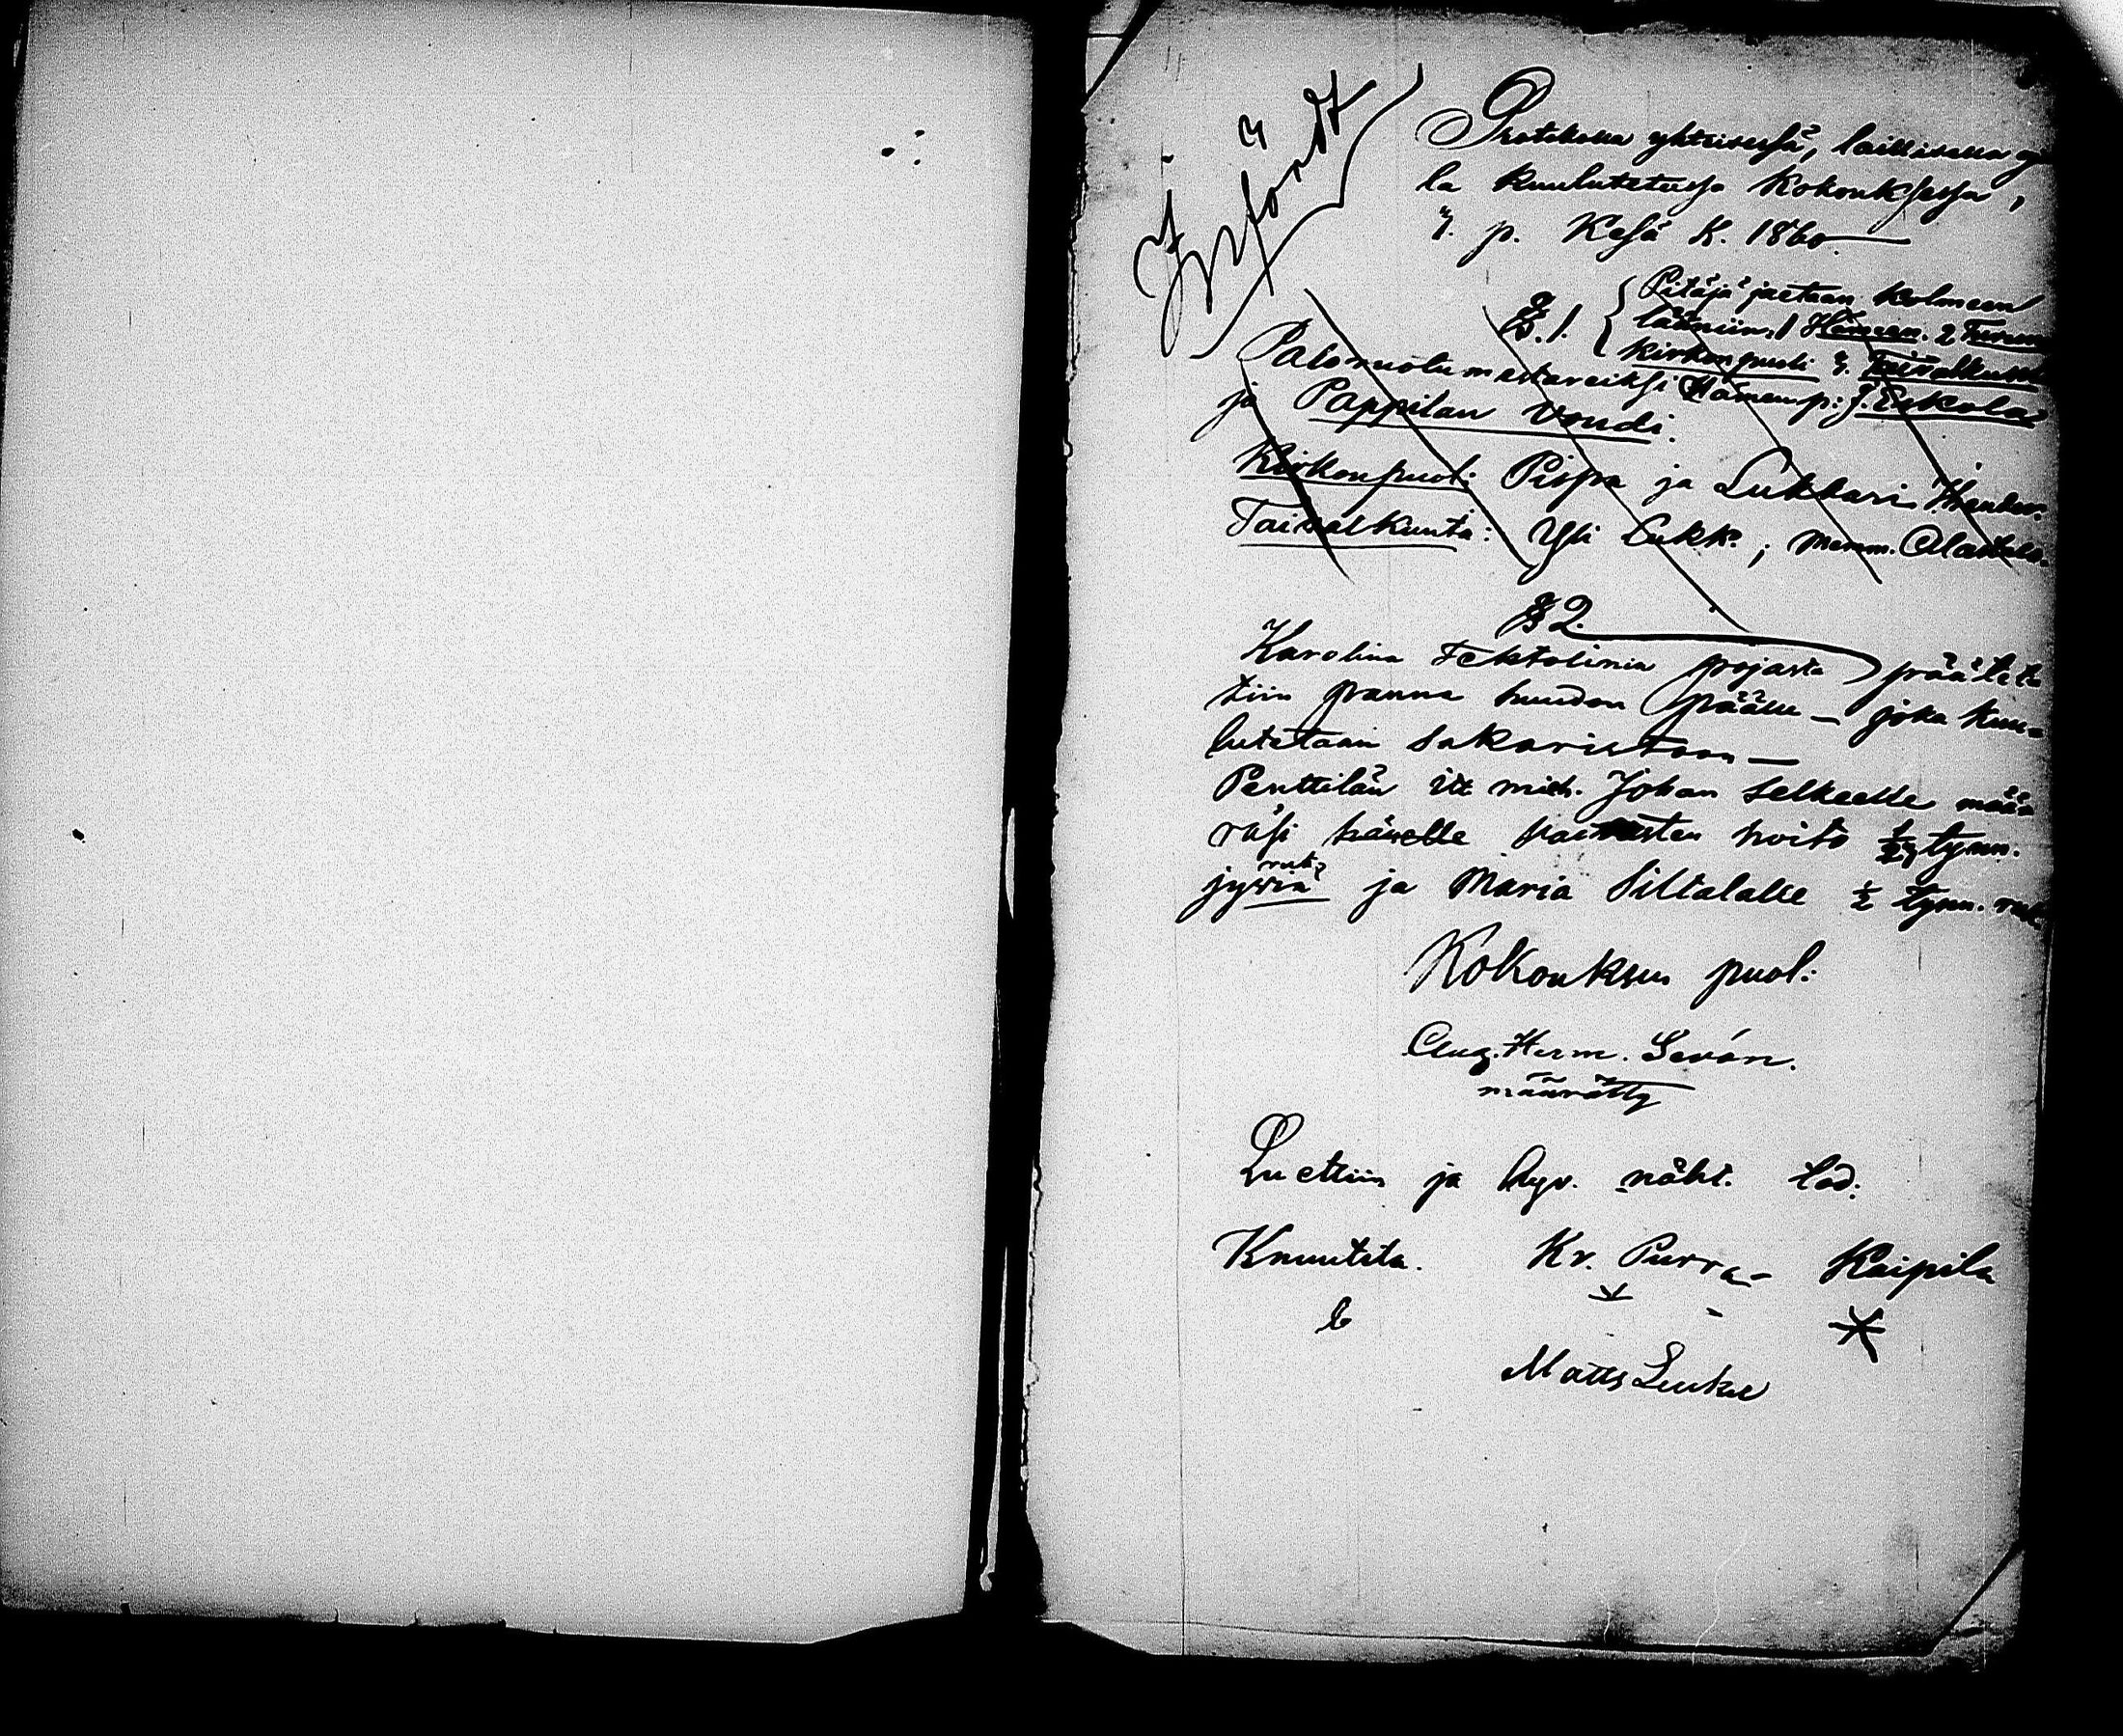 Infördt
Protokolla yhteisessä, laillisesna
la kuulutetussa Kokouksessa,
3. p. Kesä K. 1860
§.1. Pitäjä jaetaan kolmeen
lääniin, 1 Hämeen. 2
Kirkon puoli 3. Taivalkunta
Paloruotumestareiksi Hämeenp: J. Eskola
ja Pappilan Voudi.
Kirkonpuol: Pispa ja Lukkari
Taivalkunta: Yli Lukk.; Alastalo.
§ 2.
Karolina pojasta päätet
tiin panna huudon päälle – joka kuu-
lutetaan Sakaristoon –
Penttilän itt mieh. Johan Selkeelle mää
räsi hänelle hoito 1/2 tynn.
ruk.
jyviä ja Maria Siltalalle 1/2 tynn. ruk.
Kokouksen puol:
Aug. Herm. Levón.
määrätty
Luettiin ja hyv. näht. tod:
Knuutila. Kr. Purra Kaipila
Matts